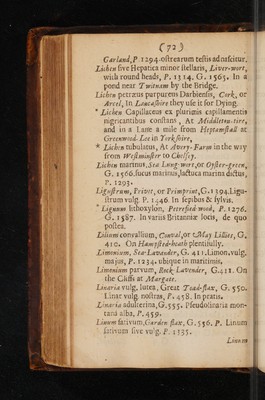 (72)
Garland, P 1294. ostrearum testis adnascitur.
Lichen sive Hepatica minor stellaris, Liver-wort,
with round heads, P. 1314. G. 1565. In a
pond near Twitnam by the Bridge.
Lichen petræus purpureus Darbiensis, Cork, or
Arcel, In Lancashire they use it for Dying.
* Lichen Capillaceus ex plurimis capillamentis
nigricantibus constans, At Middleton-tires,
and in a Lane a mile from Heptonstall at
Greenwood-Lee in Yorkshire,
* Lichen tubulatus, At Avery-Farm in the way
from Westminster to Chelsey.
Lichen marinus, Sea Lung-wort, or Oyster-green,
G. 1566. fucus marinus, lactuca marina dictus,
P. 1293.
Ligustrum, Privet, or Primprint, G. 1394. Ligu-
strum vulg. P. 1446. In sepibus & sylvis,
* Lignum lithoxylon, Petrefied wood, P. 1276.
G. 1587. In variis Britanniæ locis, de quo
postea.
Lilium convallium, Conval, or May Lillies, G.
410. On Hampsted-heath plentifully.
Limonium, Sea-Lavander, G. 411. Limon. vulg.
majus, P. 1234. ubique in maritimis,
Limonium parvum, Rock Lavender, G. 411. On
the Cliffs at Margate.
Linaria vulg. lutea, Great Toad-flax, G. 550.
Linar vulg. nostras, P. 458. In pratis.
Linaria adulterina, G. 555. Pseudolinaria mon-
tana alba, P. 459.
Linum sativum, Garden flax, G. 556. P. Linum
sativum sive vulg. P. 1335.
Linum